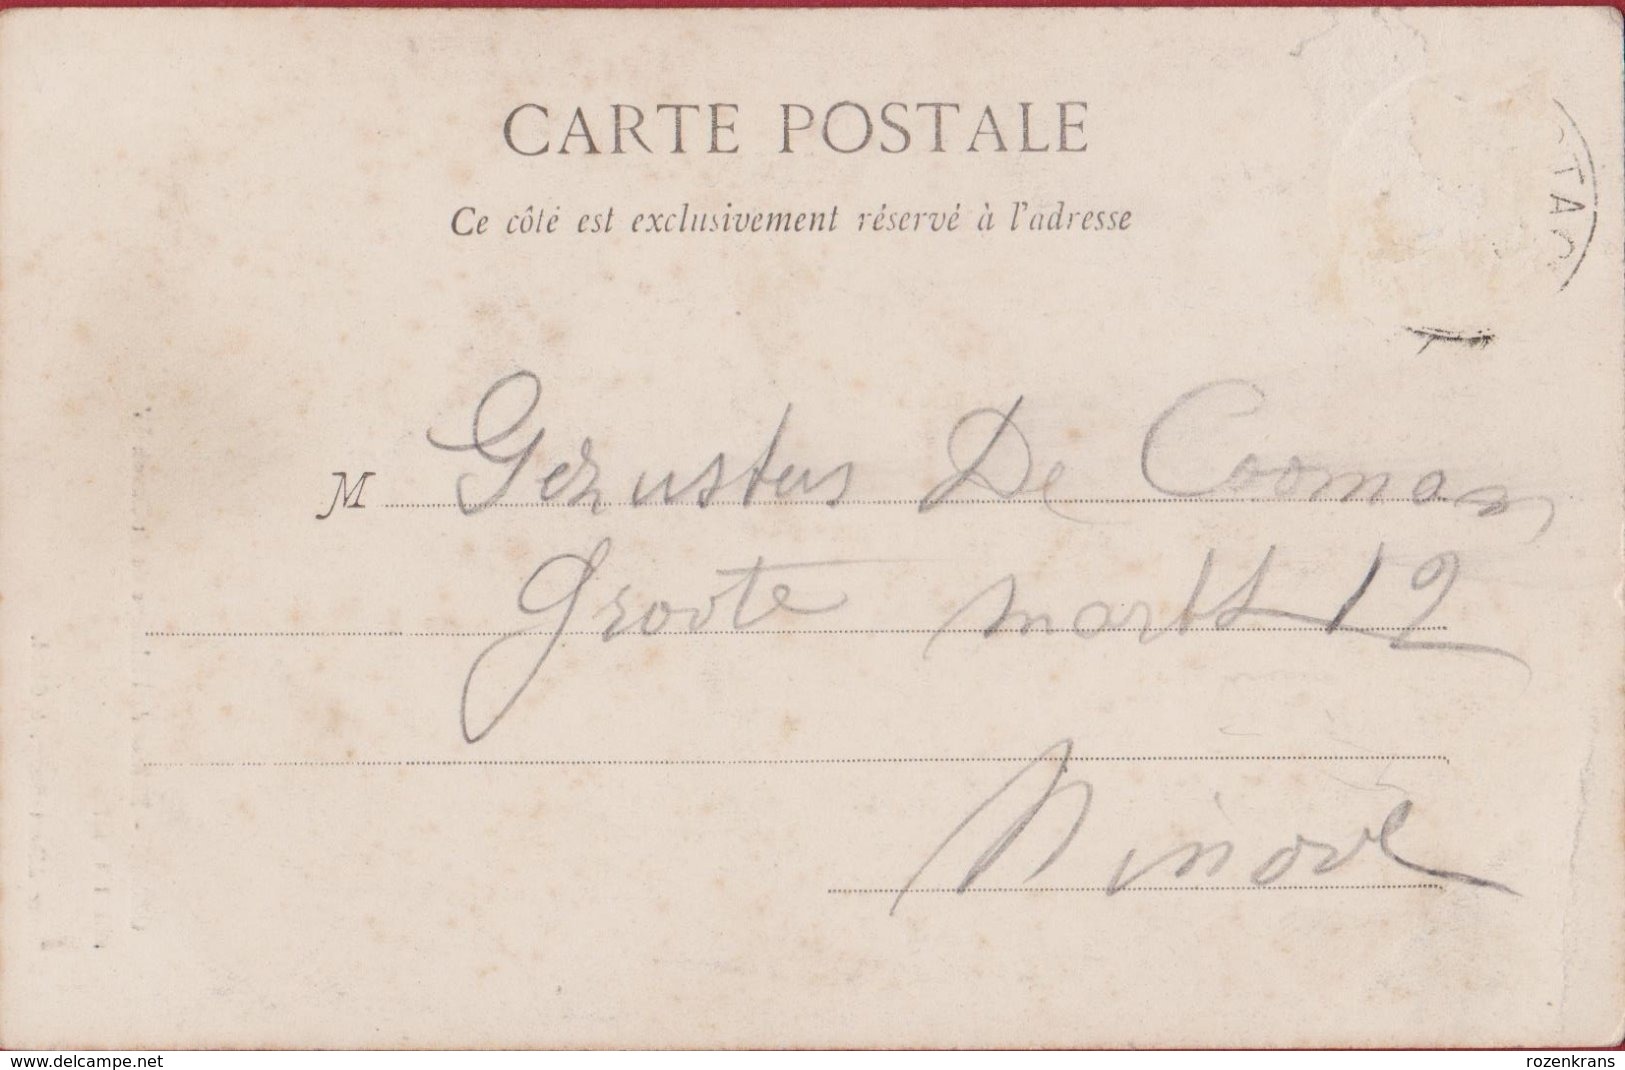 CARTE POSTALE
Ce côté est exclusivement réservé à l'adresse
STAC
M Gezusters De Cooman
Groote markt 12
Ninove
www.delcampe.net
rozenkrans